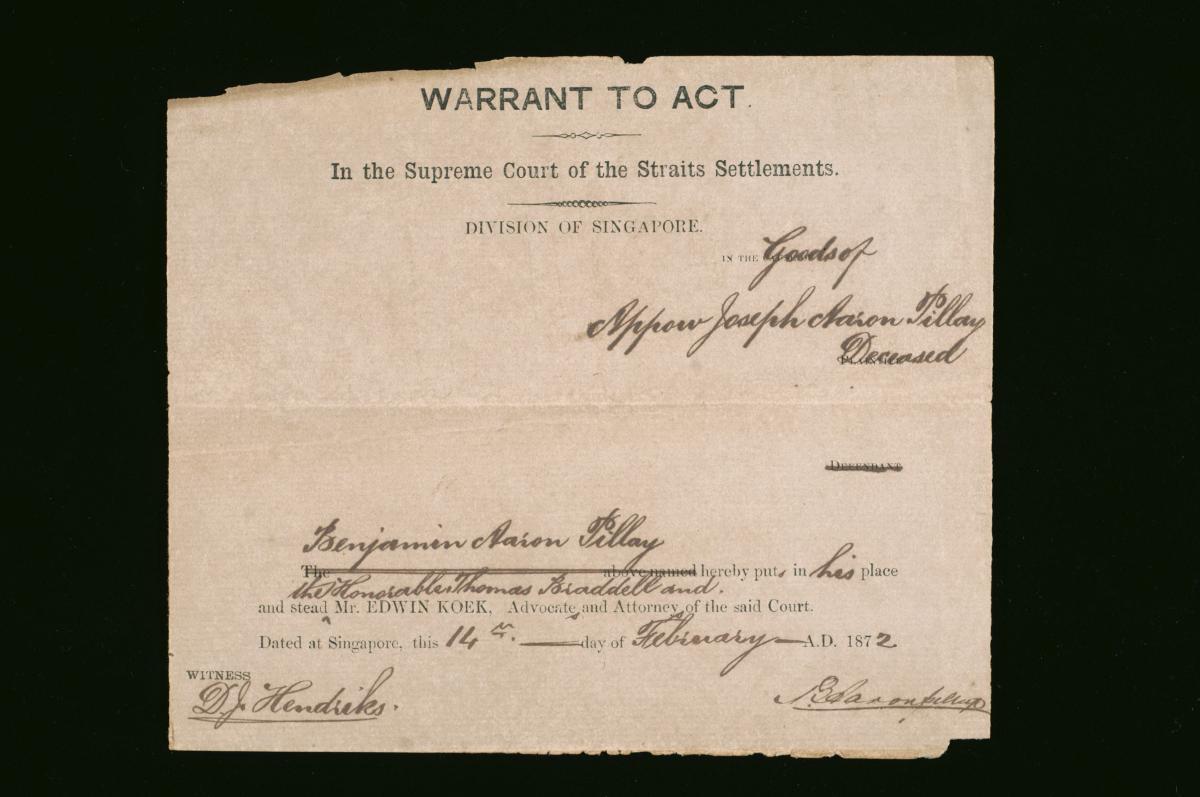 WARRANT TO ACT.
In the Supreme Court of the Straits Settlements.
DIVISION OF SINGAPORE.
IN THE Goods of
Appow Joseph Aaron Pillay
Deceased
DEFENDANT
Benjamin Aaron Pillay
The above named hereby puts in his place
the Honorable Thomas Braddell and
and stead Mr. EDWIN KOEK, Advocates and Attorneys of the said Court.
Dated at Singapore, this 14th day of February A.D. 1872
WITNESS
D. J. Hendriks.
B Aaron Pillay